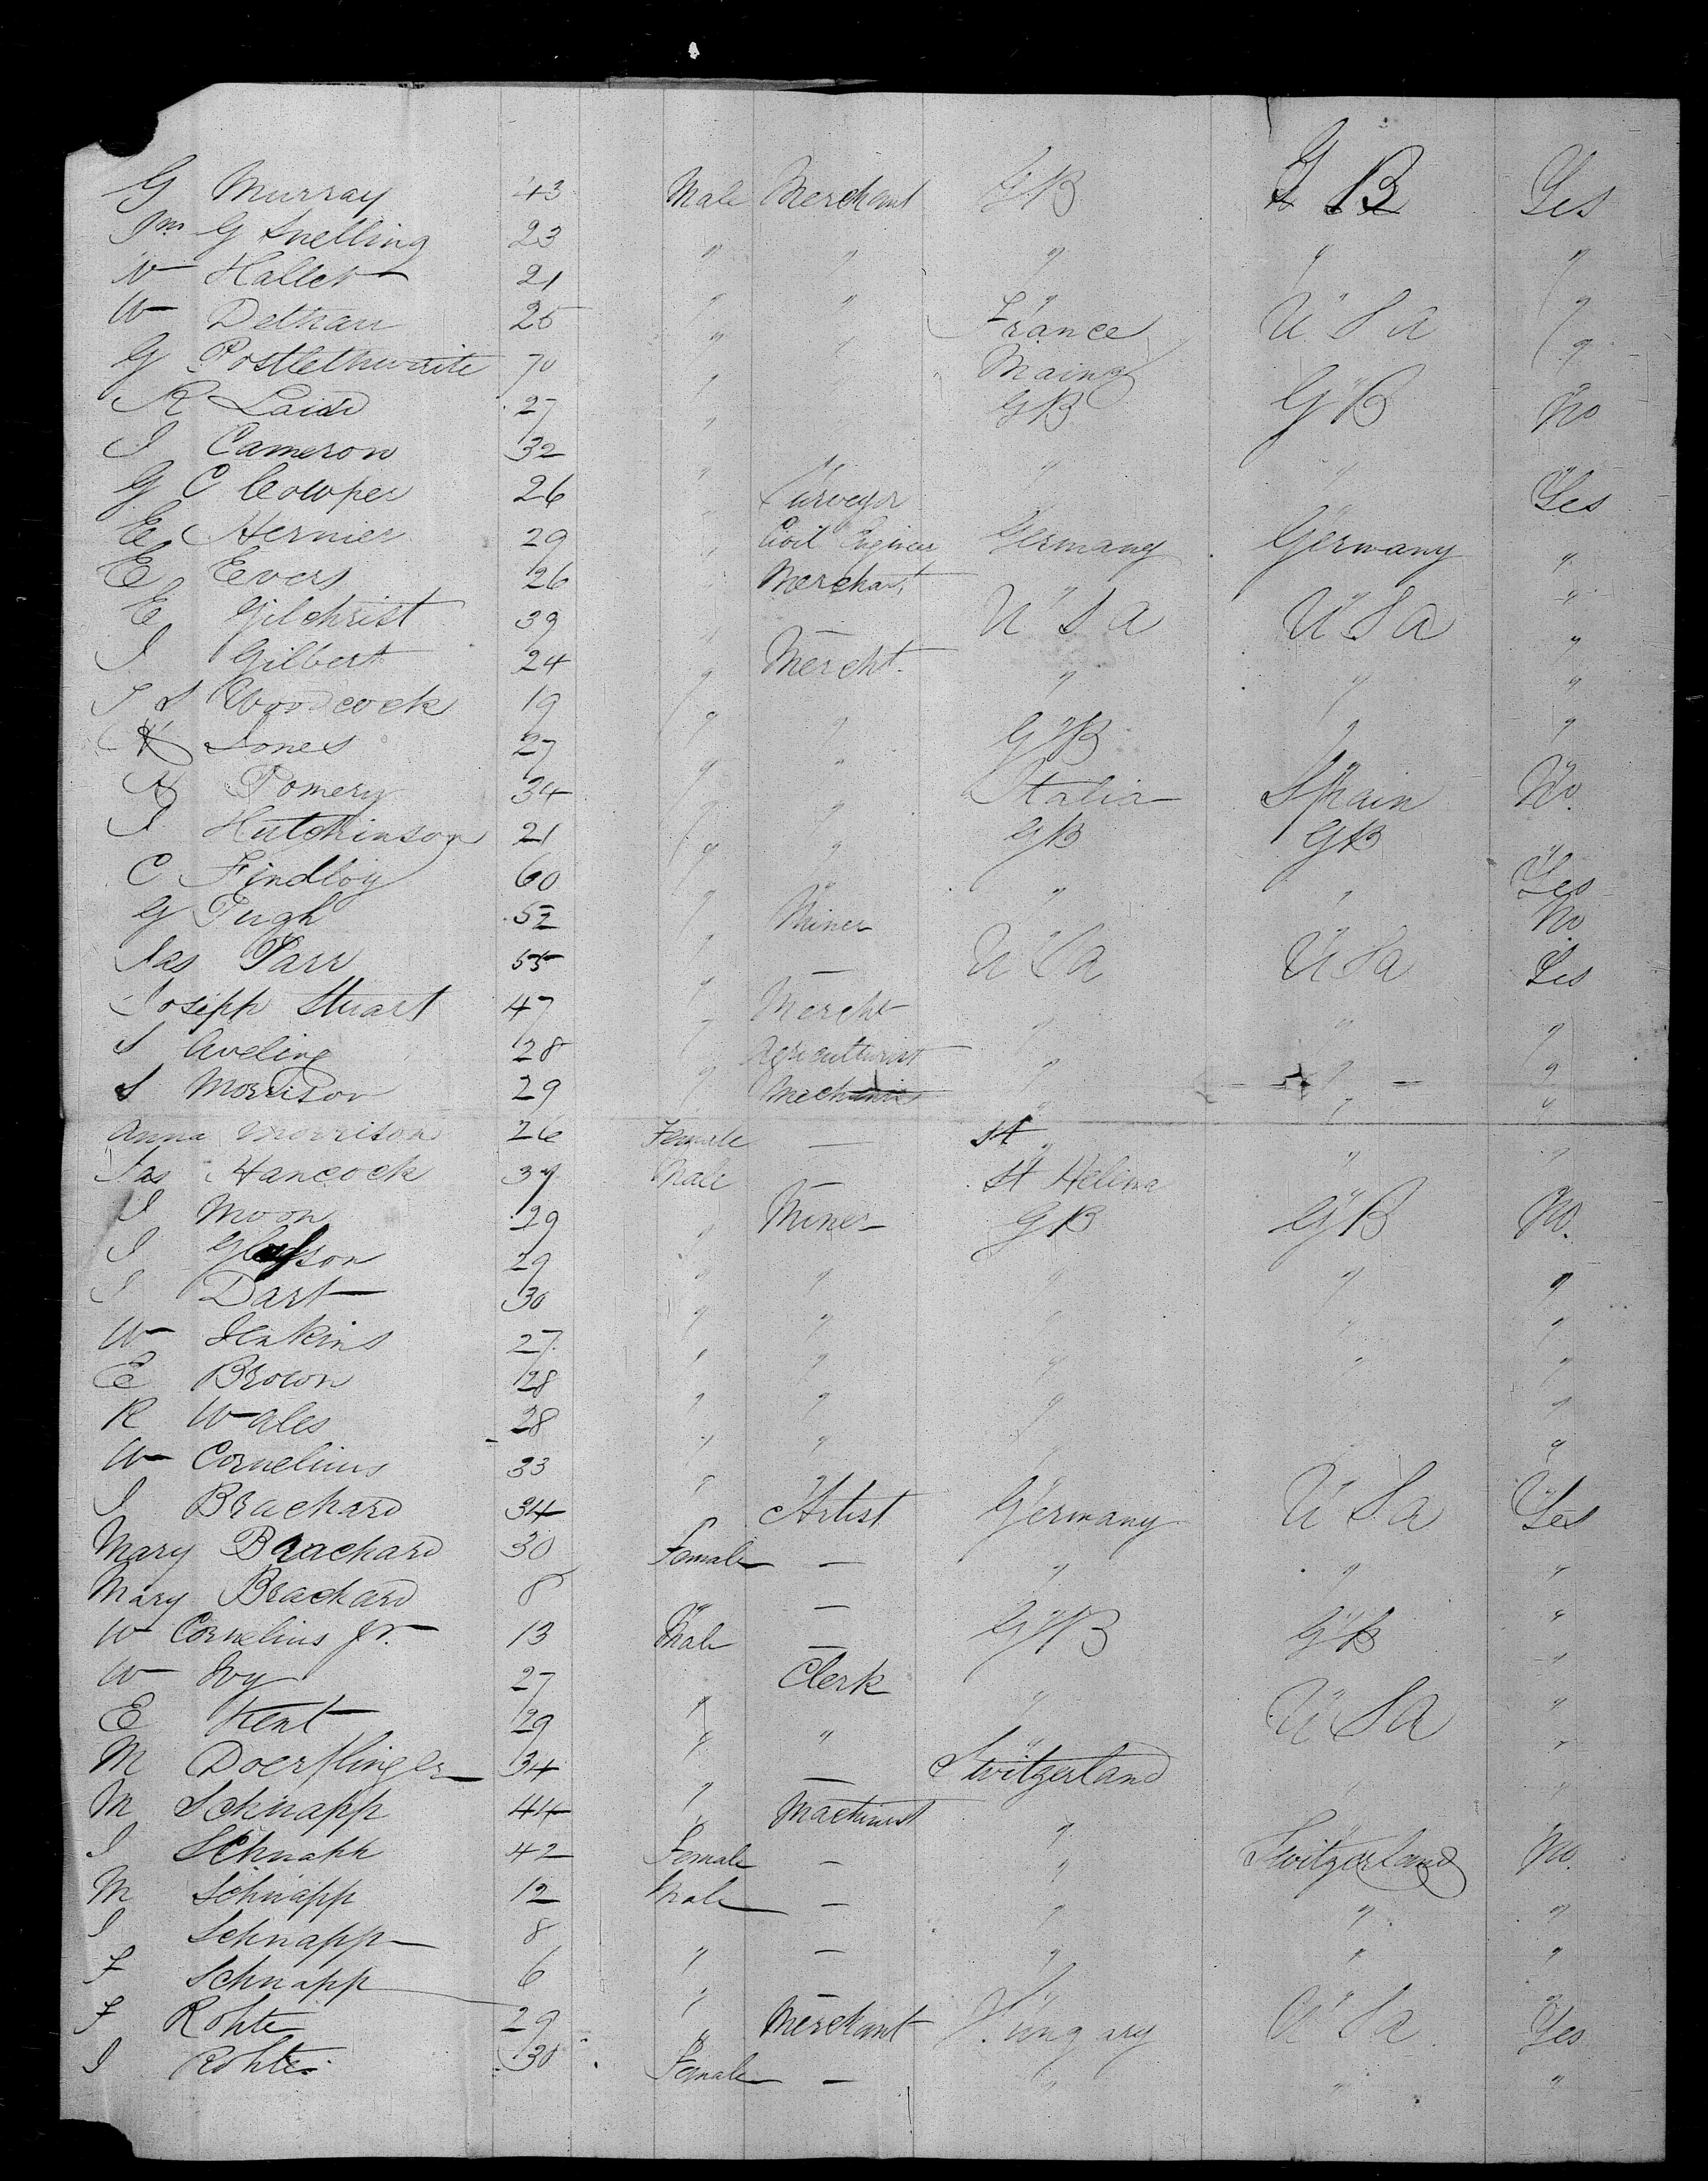 G Murray 43 Male Merchant GB GB Yes
Jms G Snelling 23 " " " " "
W Hallet 21 " " " " "
W Dethan 25 " " France U S A "
G Postlethwaite 70 " " Mainz
R Laird 27 " " GB GB No
J Cameron 32 " " " " "
G C Cowper 26 " Surveyor " " Yes
E Hernier 29 " Civil Engineer Germany Germany "
E Evers 26 " Merchant " " "
E Gilchrist 39 " — U S A U S A "
J Gilbert 24 " Mercht " " "
J S Woodcock 19 " " " " "
Jones 27 " " GB " "
A Pomery 34 " " Italia Spain No
J Hutchinson 21 " " GB GB "
C Findloy 60 " " " " Yes
G Pugh 52 " Miner " " No
Jas Parr 55 " — U S A U S A Yes
Joseph Stuart 47 " Mercht " " "
S Aveling 28 " Agriculturist " " "
S Morrison 29 " Mechanic " " "
Anna Morrison 26 Female — " " "
Jas Hancock 37 Male — St Helena " "
J Moon 29 " Miner GB GB No.
J 29 " " " " "
J Dart 30 " " " " "
W Jenkins 27 " " " " "
E Brown 28 " " " " "
R Wales 28 " " " " "
W Cornelius 33 " " " " "
J Brachard 34 " Artist Germany U S A Yes
Mary Brachard 30 Female — " " "
Mary Brachard 8 " — " " "
W Cornelius Jr. 13 Male — GB GB "
W Ivy 27 " Clerk " " "
E Kent 29 " " " U S A "
M Doerflinger 34 " — Switzerland " "
M Schnapp 44 " Machinist " " "
J Schnapp 42 Female — " Switzerland No.
M Schnapp 12 Male — " " "
J Schnapp 8 " — " " "
F Schnapp 6 " — " " "
F Rohte 29 " Merchant Hungary U S A Yes
J Rohte 30 Female — " " "